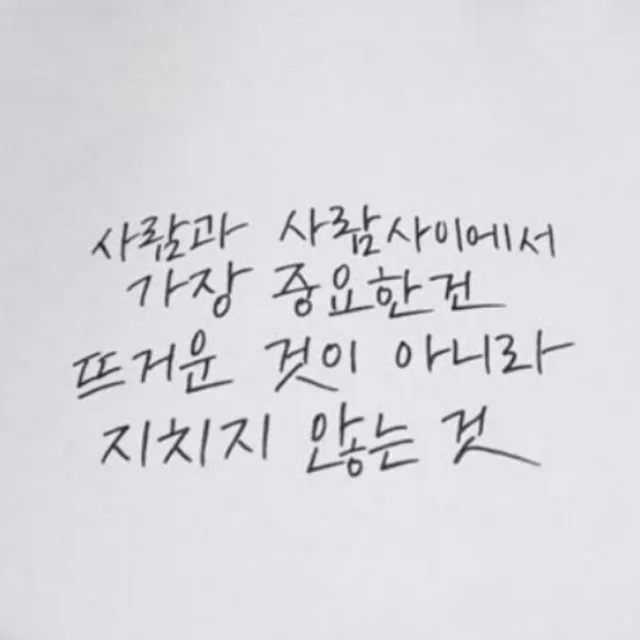 사람과 사람사이에서
가장 중요한건
뜨거운 것이 아니라
지치지 않는 것